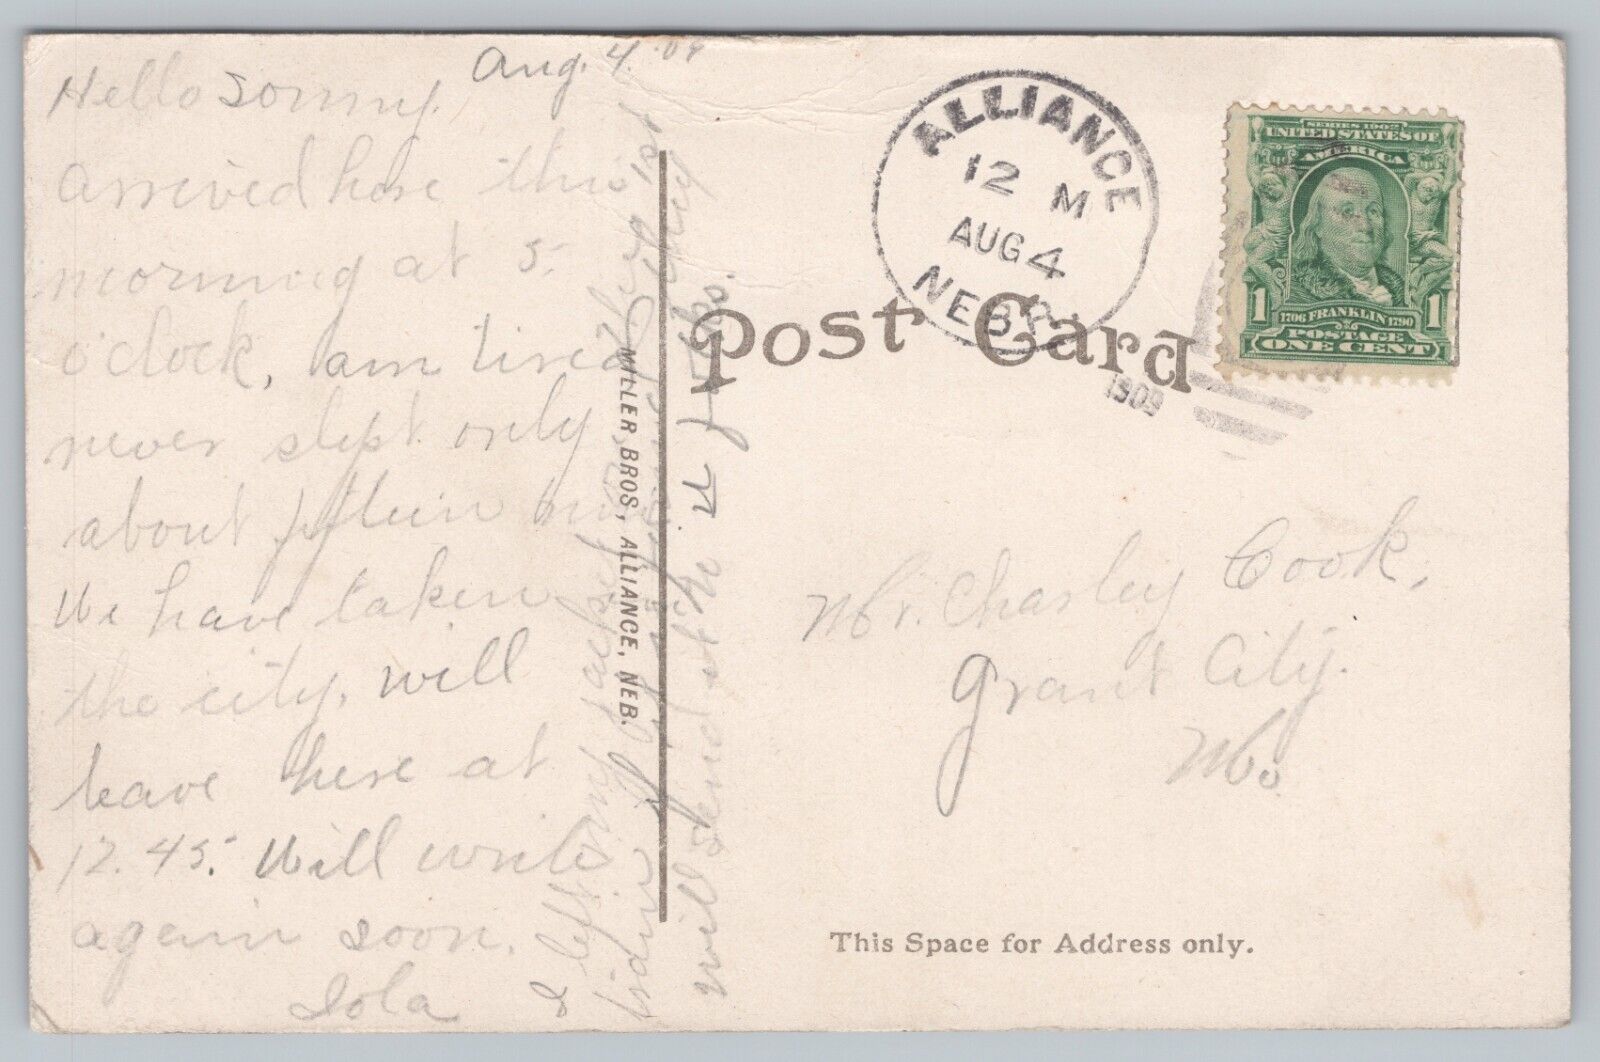 Aug. 4. '09
Hello Sonny,
arrived here this
morning at 5.
o'clock, am tired
never slept only
about fifteen min
We have taken
the city, will
leave here at
12.45. Will write
again soon.
Iola
I left my jacket
train
will send it to us
MILLER BROS, ALLIANCE, NEB.
Post Card
ALLIANCE
12 M
AUG 4
NEBR.
1909
SERIES 1902
UNITED STATES OF
AMERICA
1 1
1706 FRANKLIN 1790
POSTAGE
ONE CENT
Mr. Charley Cook,
Grant City.
Mo.
This Space for Address only.